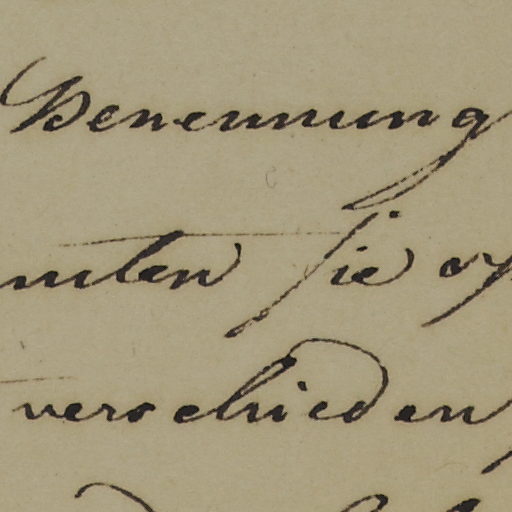 Benennung
nnten sie
verschieden,